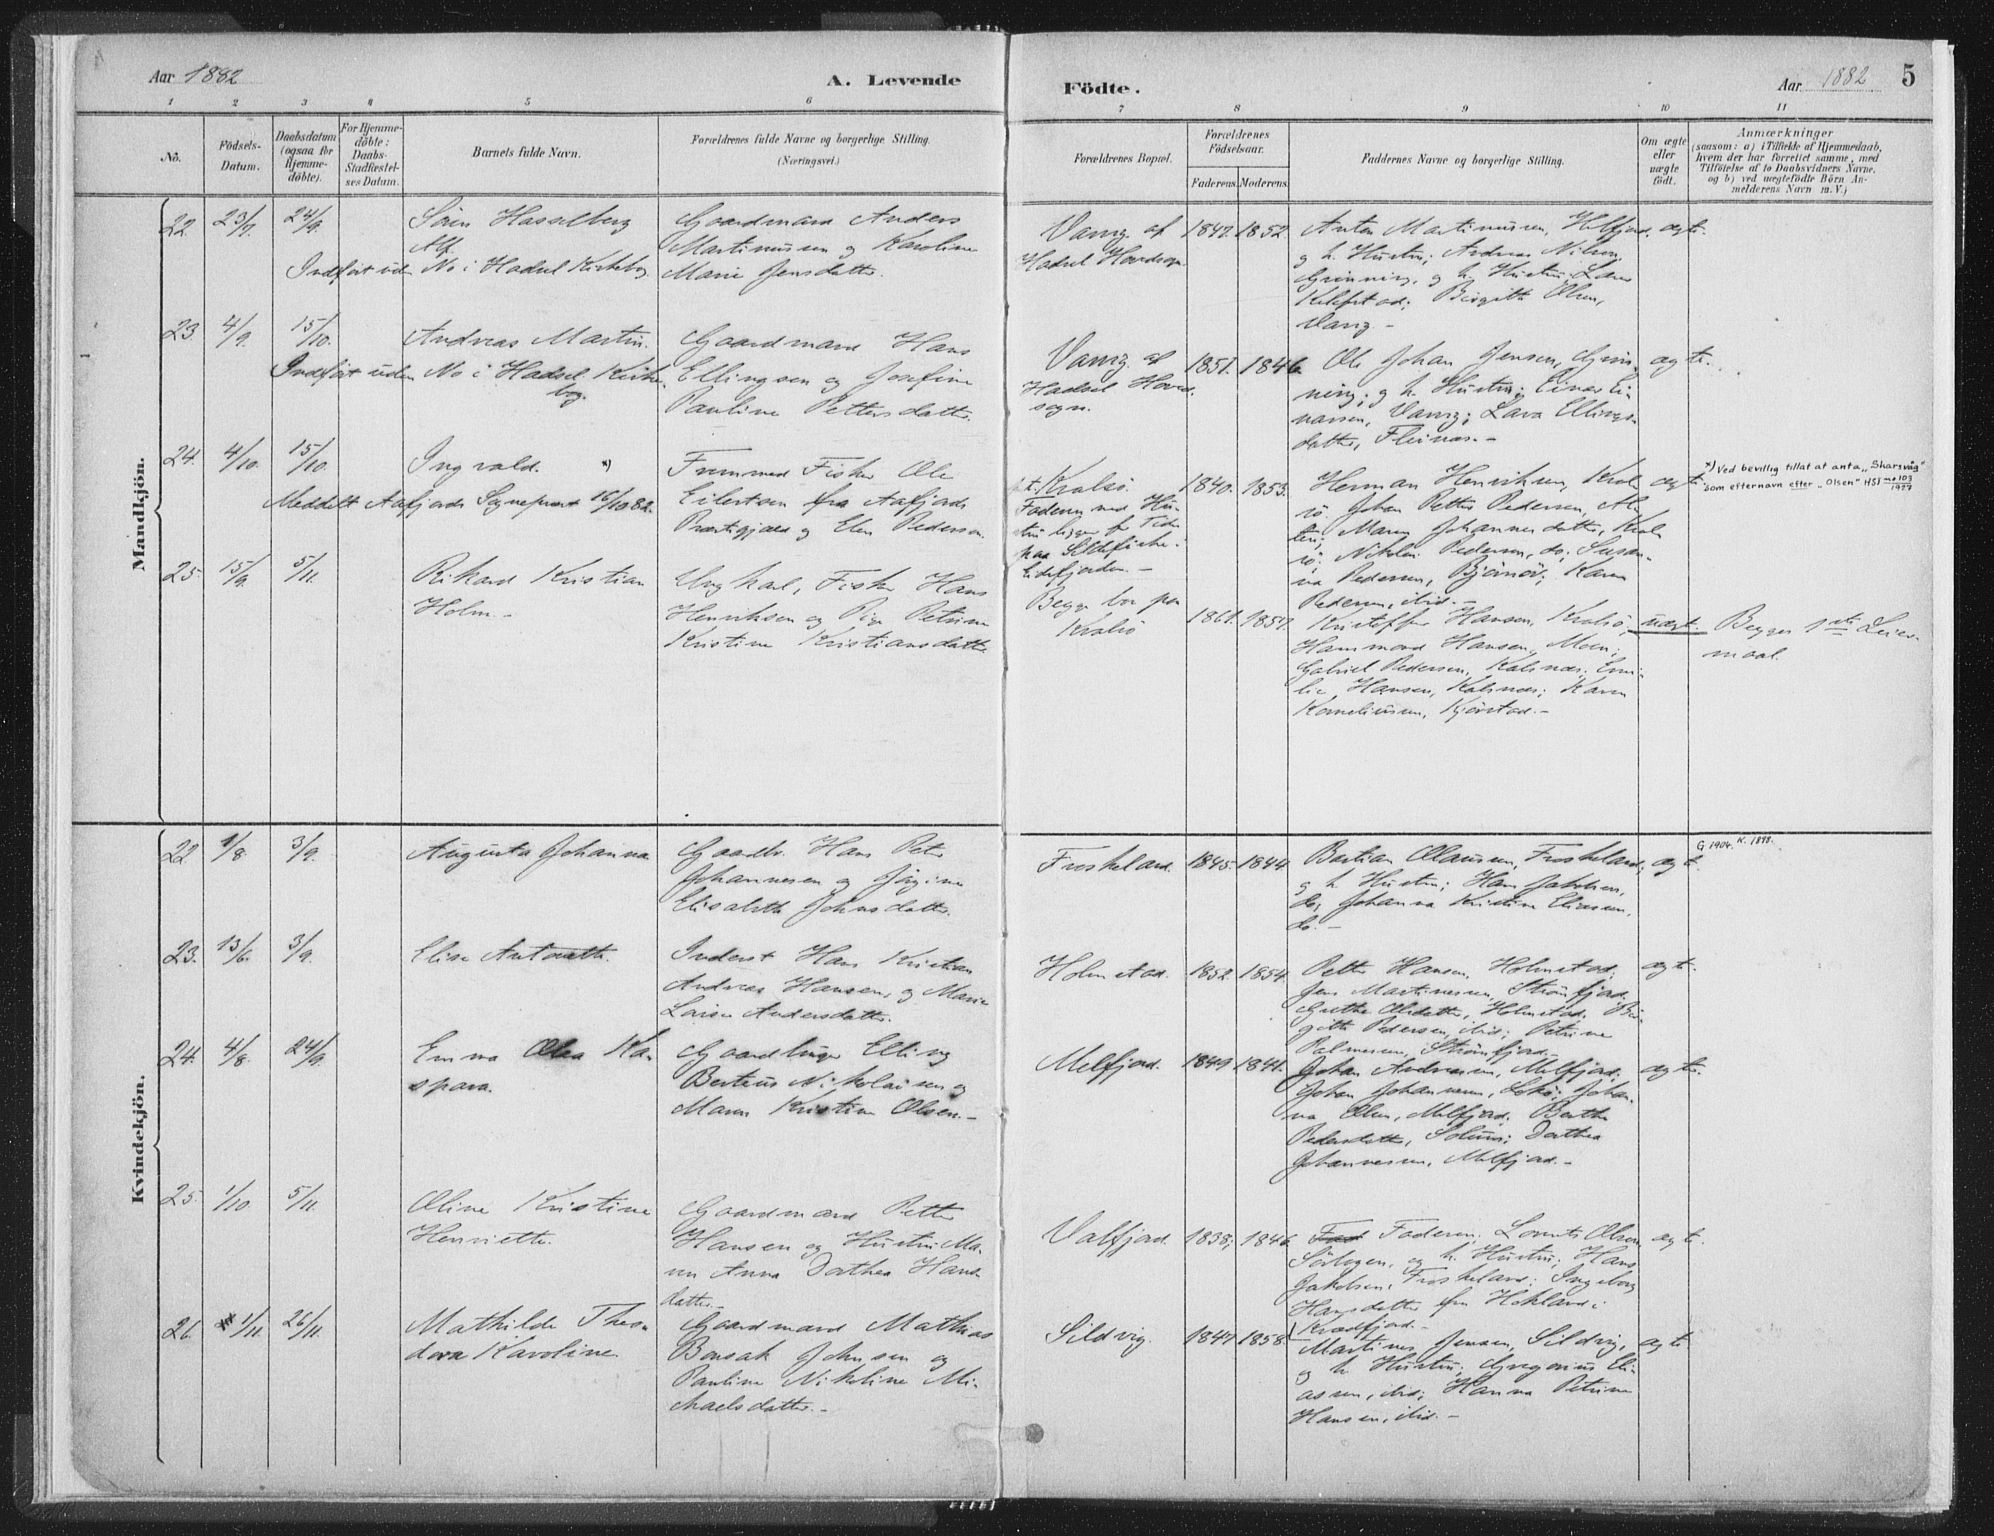 Aar 1882
A. Levende
Födte.
Aar 1882
5
1 2 3 4 5 6 7 8 9 10 11
No.
Födsels-
Datum.
Daabsdatum
(ogsaa for
Hjemme-
döbte).
For Hjemme-
döbte:
Daabs-
Stadfæstel-
ses Datum.
Barnets fulde Navn.
Forældrenes fulde Navne og borgerlige Stilling.
(Næringsvei.)
Forældrenes Bopæl.
Forældrenes
Födselsaar.
Faderens. Moderens.
Faddernes Navne og borgerlige Stilling.
Om ægte
eller
uægte
födt.
Anmærkninger
(saasom: a) i Tilfælde af Hjemmedaab,
hvem der har forrettet samme, med
Tilföielse af to Daabsvidners Navne,
og b) ved uægtefödte Börn An-
melderens Navn m. V.)
Mandkjön.
22. 23/7. 24/9.
Hasselberg
Alf
Indført uden No i Hadsel Kirkebog
Gaardmand Anders
Martinussen og Karoline
Marie Jensdatter.
Vang af
Hadsel Hovedsogn
1847. 1852.
Anton Martinussen, Melfjord,
g h. Hustru; Andreas Nilsen,
Grinning, g h. Hustru;
Birgitte Olsen,
Vang. -
ægte.
23. 4/9. 15/10.
Andreas Martin.
Indført uden No i Hadsel Kirke-
bog.
Gaardmand Hans
Ellingsen og Josefine
Pauline Pettersdatter.
Vang af
Hadsel Hoved-
sogn.
1851. 1846.
Ole Johan Jensen, Grin-
ning, g h. Hustru; Einar Ei-
narsen, Vang; Lava Ellings-
datter, Fleinæs. -
ægte.
24. 4/10. 15/10.
Ingvald. *)
Meddelt Aafjords Sognepræst 16/10 82.
Fremmed Fisker Ole
Eilertsen fra Aafjords
Præstegjæld og Elen Pedersen.
p.t. Kralsö.
Faderen med Hu-
stru ligger for Tiden
paa Sildefiske i
Eidsfjorden. -
1840. 1853.
Herman Henriksen, Kral-
sö, Johan Petter Pedersen,
Maren Johannesdatter, Kral-
sö; Nikolai Pedersen, do; Susan-
na Pedersen, Björnö; Karen
Pedersen, ibid. -
ægte.
*) Ved bevillig tillat at anta "Skarsvåg"
som efternavn efter "Olsen" HSJ no 103/1927
25. 15/9. 5/11.
Rikard Kristian
Holm. -
Ungkarl, Fisker Hans
Henriksen og Pige Petrine
Kristine Kristiansdatter
Begge bor paa
Kralsö
1861. 1857.
Kristoffer Hansen, Kralsö,
Hammond Hansen, Moen;
Gabriel Pedersen, Kalsnæs; Emi-
lie Hansen, Kalsnæs; Karen
Korneliussen, Kjörstad. -
uægt.
Begges 1ste Leiers-
maal.
Kvindekjön.
22 1/8. 3/9.
Augusta Johanna
Gaardbr. Hans Peter
Johannesen og Jörgine
Elisabeth Johnsdatter.
Froskeland. 1845. 1844.
Bastian Olaussen, Froskeland,
g h. Hustru; Hans Jakobsen,
do; Johanna Kristine Eliassen,
do. -
ægte.
G 1904. K. 1898.
23. 13/6. 3/9.
Elise Antonette.
Inderst Hans Kristian
Andreas Hansen, og Marie
Lovise Andersdatter.
Holmstad. 1852. 1854.
Petter Hansen, Holmstad;
Jens Martinussen, Strömfjord,
Grethe Olsdatter, Holmstad, Bir-
gitte Pedersen, ibid; Petrine
Palmesen, Strömfjord. -
ægte.
24. 4/8. 24/9.
Emma Olea Ka-
spara.
Gaardbruger Elling
Berteus Nikolaisen og
Maren Kristine Olsen. -
Melfjord. 1849. 1841.
Johan Andreassen, Melfjord,
Johan Johannesen, Johan-
na Olsen, Melfjord; Berthe
Pedersdatter, Dorthea
Johannesen, Melfjord. -
ægte.
25. 1/10. 5/11.
Oline Kristine
Henriette.
Gaardmand Petter
Hansen og Hustru Ma-
ren Anna Dorthea Hans-
datter. -
Valfjord. 1838, 1846.
Faderen, Lorents Olsen
Sörtogen, og h. Hustru; Hans
Jakobsen, Froskeland; Ingeborg
Hansdatter fra Hokland i
Kvædfjord. -
ægte.
26. 1/11. 26/11.
Mathilde Theo-
dora Karoline.
Gaardmand Mathias
Bonsak Johnsen og
Pauline Nikoline Mi-
chaelsdatter. -
Sildvig. 1847. 1858.
Martines Jensen, Sildvig,
g h. Hustru, Gregorius Eli-
assen, ibid; Hanna Petrine
Hansen, ibid. -
ægte